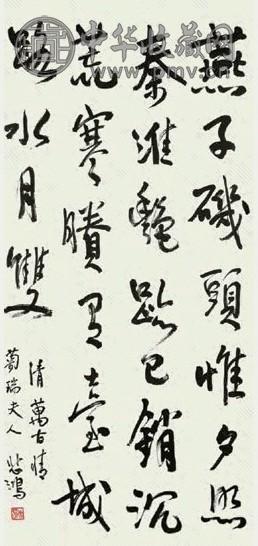 中华收藏网
www.pmv.cn
燕子磯頭惟夕照
秦淮艷跡已銷沉
荒寒賸有臺城
路水月雙
清萬古情
瑞夫人 悲鴻